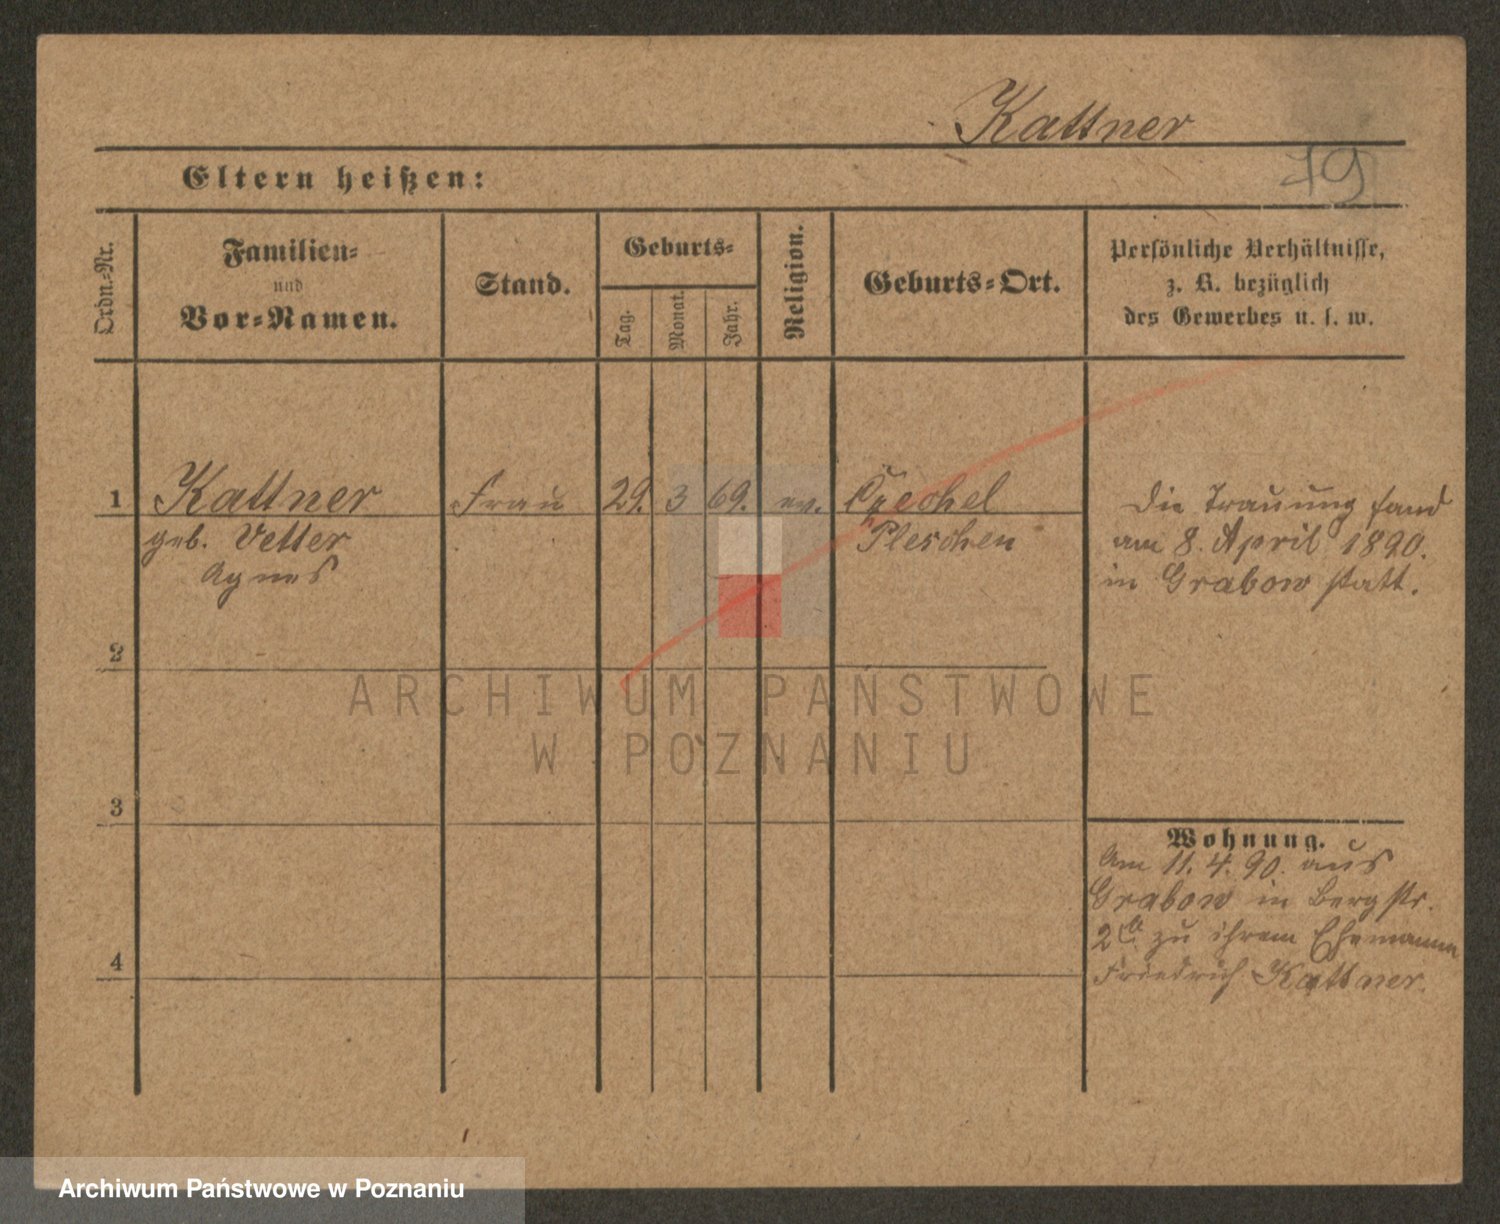 Kattner
79
Eltern heißen:
Ordn.-Nr.
Familien-
und
Vor-Namen.
Stand.
Geburts-
Tag.
Monat.
Jahr.
Religion.
Geburts-Ort.
Persönliche Verhältnisse,
z. B. bezüglich
des Gewerbes u. s. w.
1 Kattner Frau 29. 3 69. ev. Czechel
geb. Vetter Pleschen
Agnes
Die Trauung fand
am 8. April 1890.
in Grabow statt.
2
3
4
Wohnung.
Am 11. 4. 90. aus
Grabow in Bergstr.
2a zu ihrem Ehemann
Friedrich Kattner.
ARCHIWUM PAŃSTWOWE
W POZNANIU
Archiwum Państwowe w Poznaniu